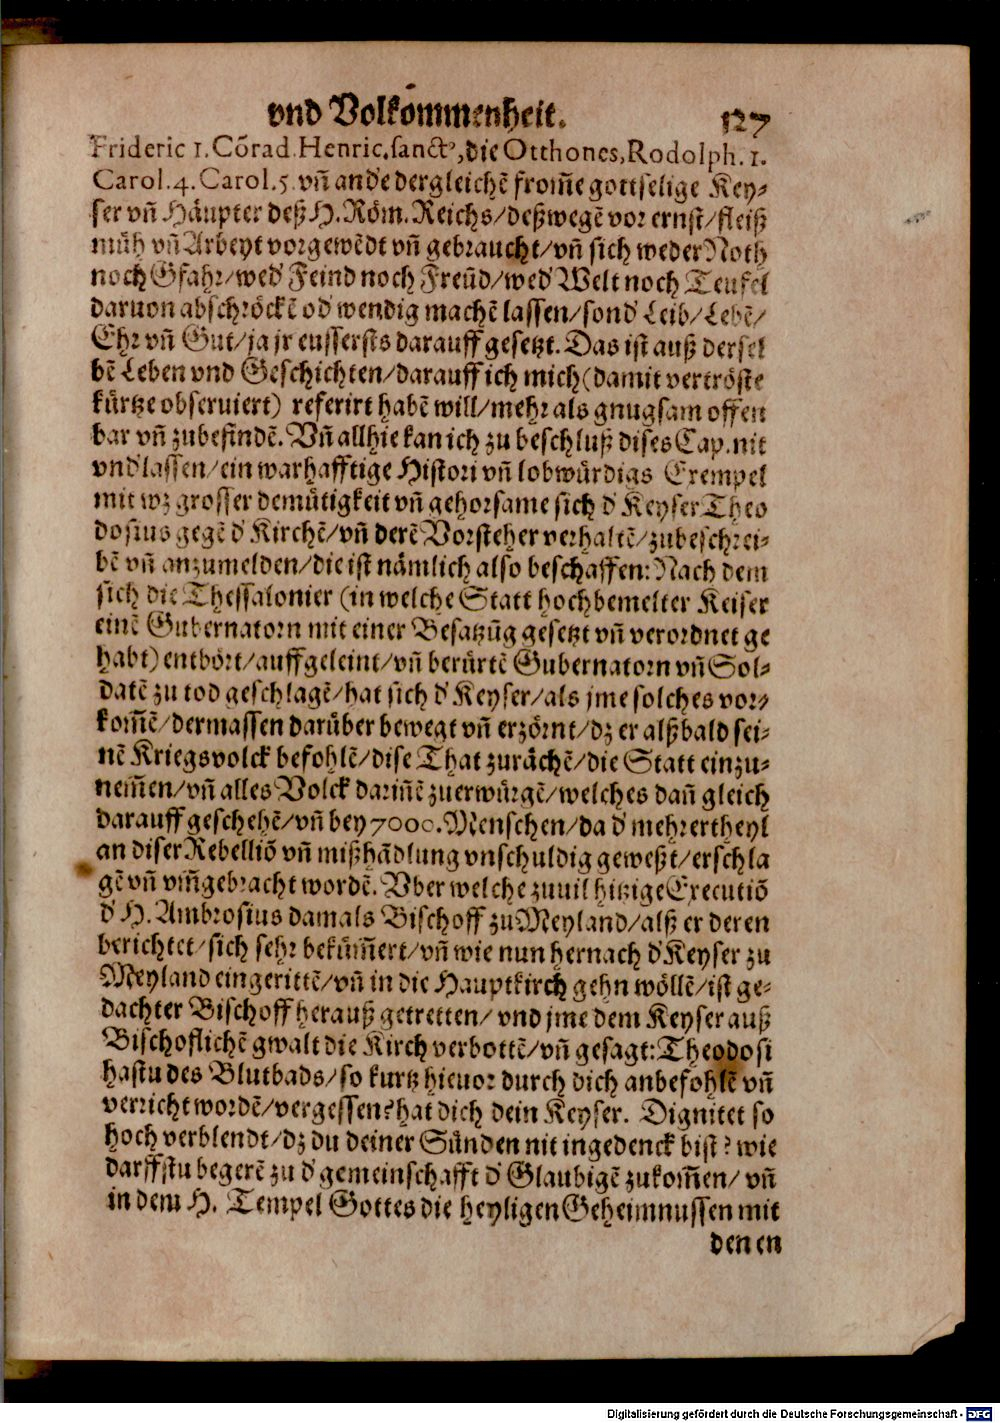 vnd Volkom̃menheit. 127
Frideric 1. Cõrad. Henric. sanctꝰ, die Otthones, Rodolph. 1.
Carol. 4. Carol. 5. vñ and'e dergleichẽ from̃e gottselige Key-
ser vñ Häupter deß H. Röm. Reichs/ deßwegẽ vor ernst/ fleiß
müh vñ Arbeyt vorgewẽdt vñ gebraucht/ vñ sich weder Noth
noch Gfahr/ wed' Feind noch Freũd/ wed' Welt noch Teufel
daruon abschröckẽ od' wendig machẽ lassen/ sond' Leib/ Lebẽ/
Ehr vñ Gut/ ja jr eussersts darauff gesetzt. Das ist auß dersel
bẽ Leben vnd Geschichten/ darauff ich mich (damit vertröste
kürtze obseruiert) referirt habẽ will/ mehr als gnugsam offen
bar vñ zubefindẽ. Vñ allhie kan ich zu beschluß dises Cap. nit
vnd'lassen/ ein warhafftige Histori vñ lobwürdigs Exempel
mit wz grosser demütigkeit vñ gehorsame sich d' Keyser Theo
dosius gegẽ d' Kirchẽ/ vñ derẽ Vorsteher verhaltẽ/ zubeschrei-
bẽ vñ anzumelden/ die ist nämlich also beschaffen: Nach dem
sich die Thessalonier (in welche Statt hochbemelter Keiser
einẽ Gubernatorn mit einer Besatzũg gesetzt vñ verordnet ge
habt) entbört/ auffgeleint/ vñ berürtẽ Gubernatorn vñ Sol-
datẽ zu tod geschlagẽ/ hat sich d' Keyser/ als jme solches vor-
kom̃ẽ/ dermassen darüber bewegt vñ erzörnt/ dz er alßbald sei-
nẽ Kriegsvolck befohlẽ/ dise That zurächẽ/ die Statt einzu-
nem̃en/ vñ alles Volck dariñẽ zuerwürgẽ/ welches dañ gleich
darauff geschehẽ/ vñ bey 7000. Menschen/ da d' mehrertheyl
an diser Rebelliõ vñ mißhãdlung vnschuldig geweßt/ erschla
gẽ vñ vm̃gebracht wordẽ. Vber welche zuuil hitzige Executiõ
d' H. Ambrosius damals Bischoff zu Meyland/ alß er deren
berichtet/ sich sehr beküm̃ert/ vñ wie nun hernach d' Keyser zu
Meyland eingerittẽ/ vñ in die Hauptkirch gehn wöllẽ/ ist ge-
dachter Bischoff herauß getretten/ vnd jme dem Keyser auß
Bischoflichẽ gwalt die Kirch verbottẽ/ vñ gesagt: Theodosi
hastu des Blutbads/ so kurtz hieuor durch dich anbefohlẽ vñ
verricht wordẽ/ vergessen? hat dich dein Keyser. Dignitet so
hoch verblendt/ dz du deiner Sünden nit ingedenck bist? wie
darffstu begerẽ zu d' gemeinschafft d' Glaubigẽ zukom̃en/ vñ
in dem H. Tempel Gottes die heyligen Geheimnussen mit
denen
Digitalisierung gefördert durch die Deutsche Forschungsgemeinschaft - DFG